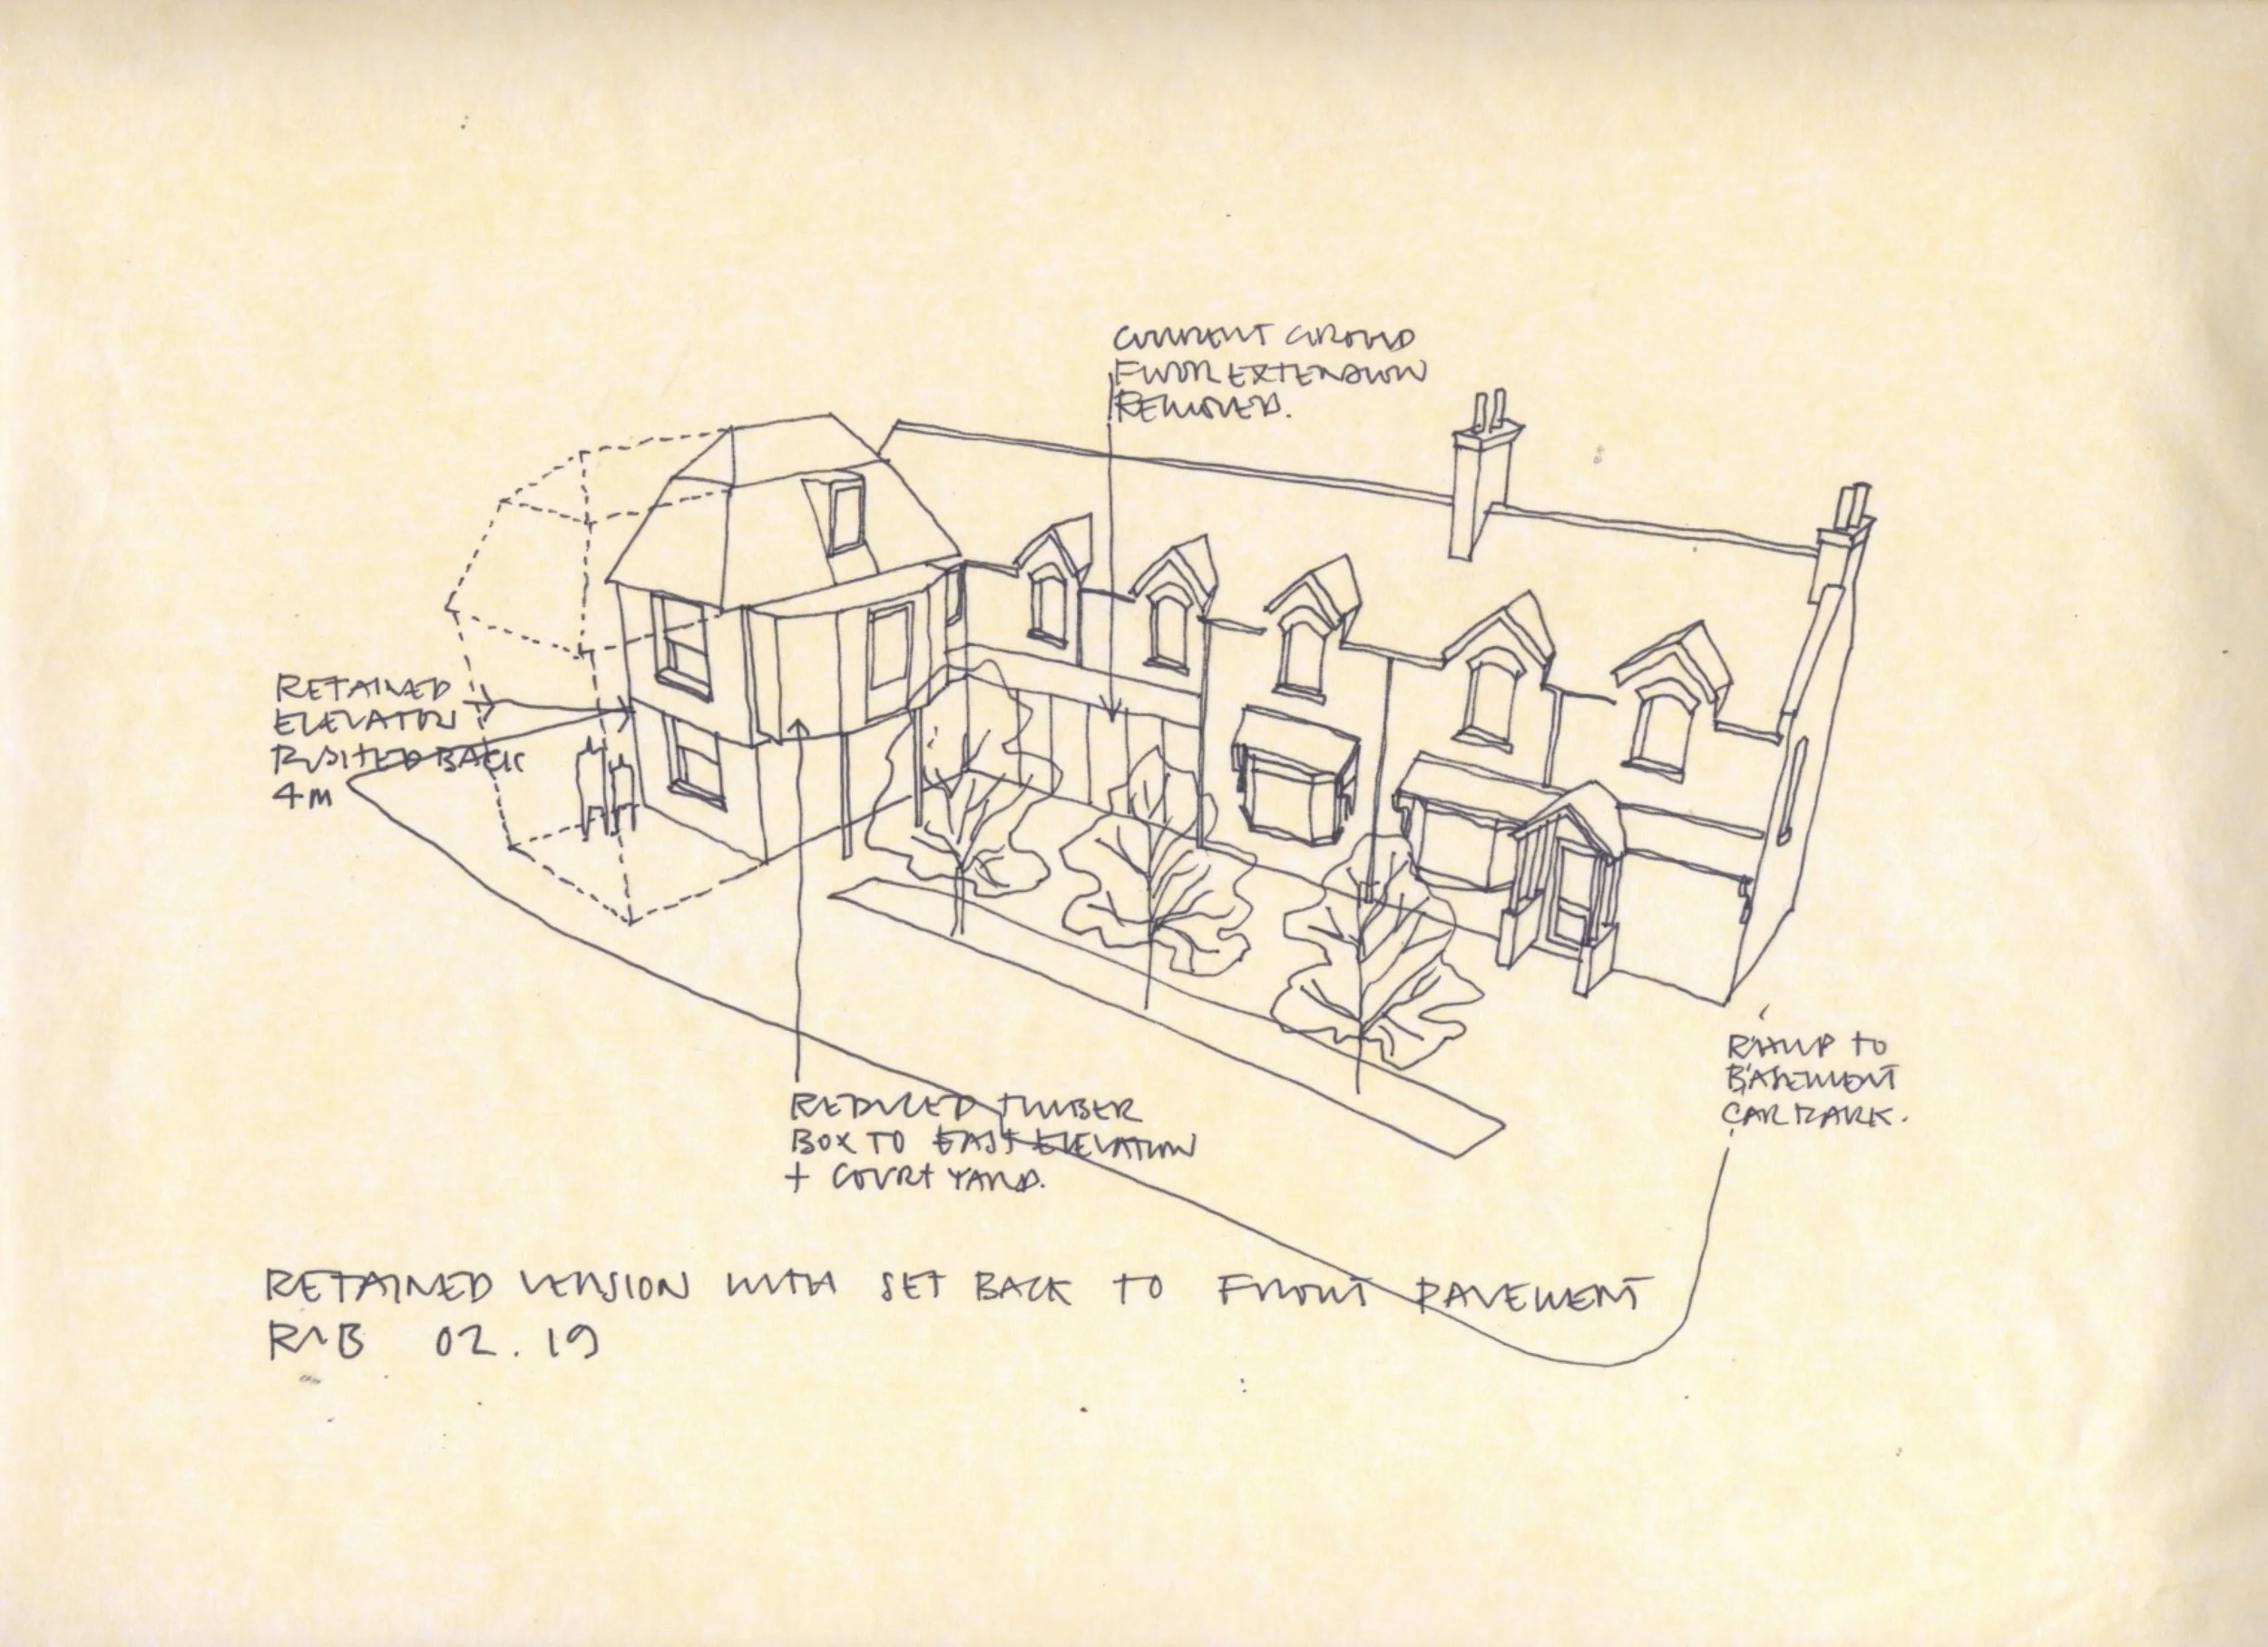 CURRENT GROUND
FLOOR EXTENSION
REMOVED.
RETAINED
ELEVATION
PUSHED BACK
4M
RAMP TO
BASEMENT
CAR PARK.
REDUCED TIMBER
BOX TO EAST ELEVATION
+ COURTYARD.
RETAINED VERSION WITH SET BACK TO FRONT PAVEMENT
02.19